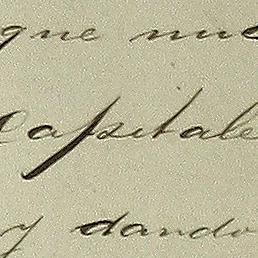 que nue
Capitale
y dando